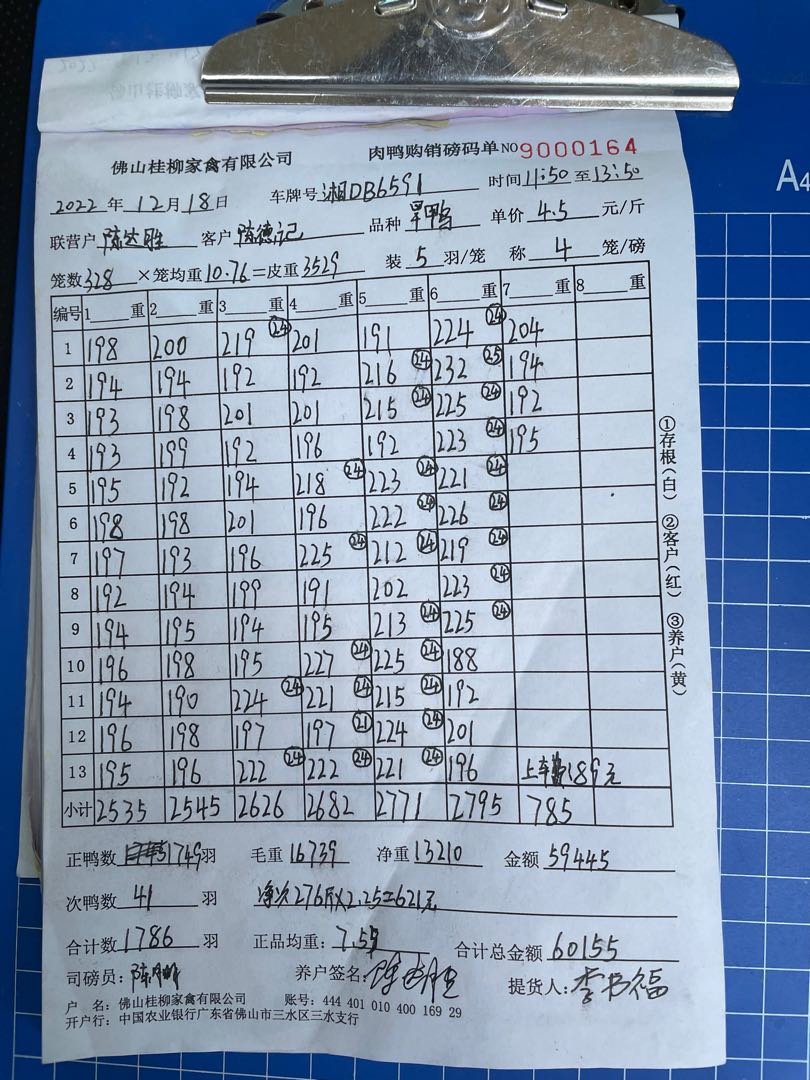 佛山桂柳家禽有限公司 肉鸭购销磅码单 NO 9000164
2022 年 12 月 18 日 车牌号 湘DB6591 时间 11:50 至 13:50
联营户 陈达胜 客户 陈德记 品种 旱鸭 单价 4.5 元/斤
笼数 328 × 笼均重 10.76 = 皮重 3529 装 5 羽/笼 称 4 笼/磅
编号 1 重 2 重 3 重 4 重 5 重 6 重 7 重 8 重
1 198 200 219 24 201 191 224 24 204
2 194 194 192 192 216 24 232 25 194
3 193 198 201 201 215 24 225 24 192
4 193 199 192 196 192 223 24 195
5 195 192 194 218 24 223 24 221 24
6 198 198 201 196 222 24 226 24
7 197 193 196 225 24 212 24 219 24
8 192 194 199 191 202 223 24
9 194 195 194 195 213 24 225 24
10 196 198 195 227 24 225 24 188
11 194 190 224 24 221 24 215 24 192
12 196 198 197 197 21 224 24 201
13 195 196 222 24 222 24 221 24 196 上车费189元
小计 2535 2545 2626 2682 2771 2795 785
正鸭数 1749 羽 毛重 16739 净重 13210 金额 59445
次鸭数 41 羽 净次276斤×2.25=621元
合计数 1786 羽 正品均重: 7.55 合计总金额 60155
司磅员: 陈 养户签名: 提货人: 李书福
户 名: 佛山桂柳家禽有限公司 账号: 444 401 010 400 169 29
开户行: 中国农业银行广东省佛山市三水区三水支行
①存根(白) ②客户(红) ③养户(黄)
A4